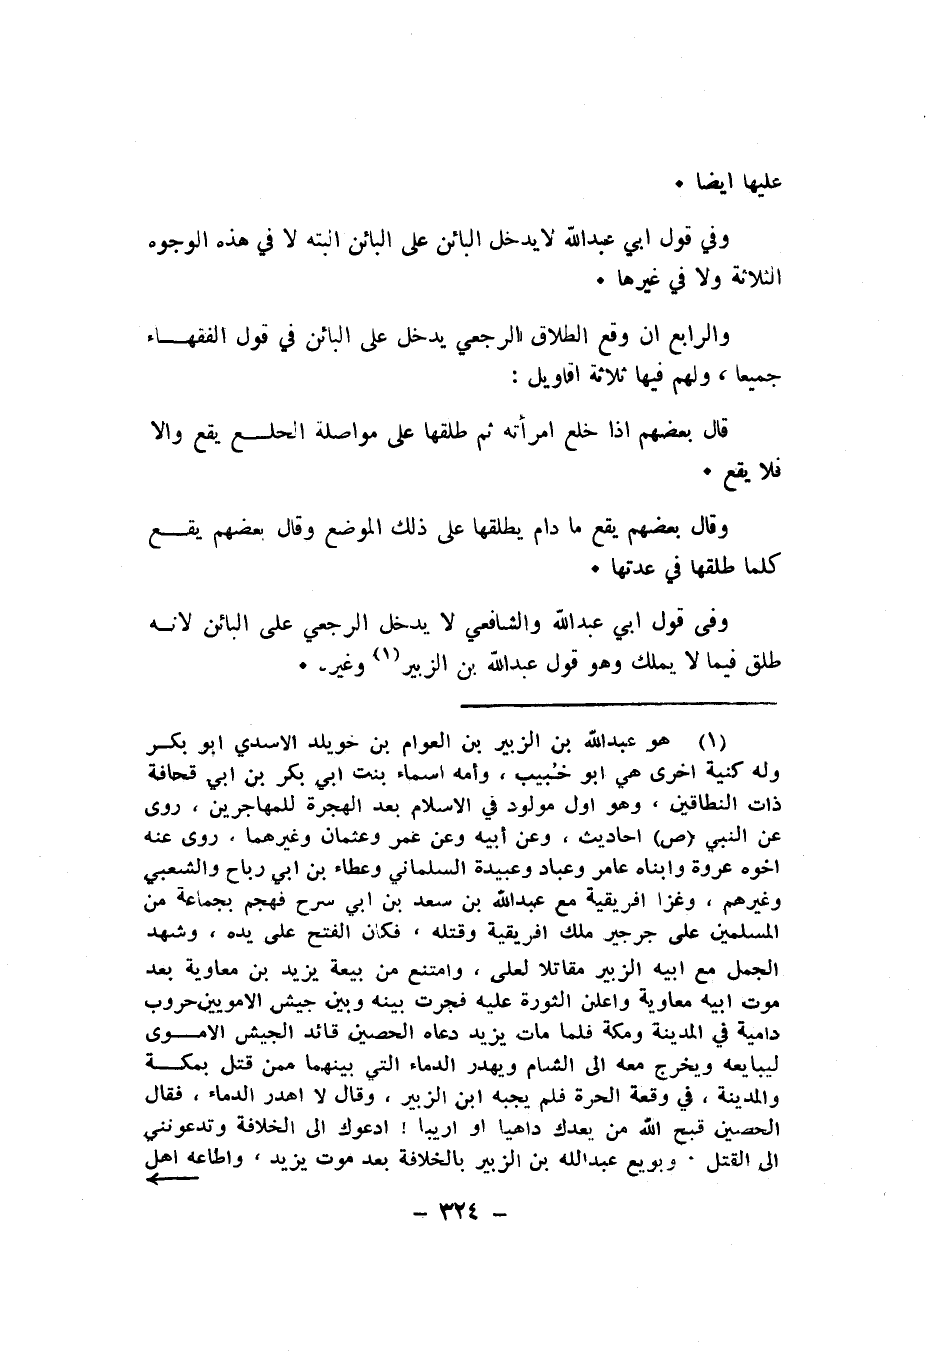 عليها ايضا ٠
وفي قول ابي عبدالله لايدخل البائن على البائن البته لا في هذه الوجوه
الثلاثة ولا في غيرها ٠
والرابع ان وقع الطلاق الرجعي يدخل على البائن في قول الفقهـــاء
جميعا ، ولهم فيها ثلاثة اقاويل :
قال بعضهم اذا خلع امرأته ثم طلقها على مواصلة الخلـــع يقع والا
فلا يقع ٠
وقال بعضهم يقع ما دام يطلقها على ذلك الموضع وقال بعضهم يقـــع
كلما طلقها في عدتها ٠
وفى قول ابي عبدالله والشافعي لا يدخل الرجعي على البائن لانـه
طلق فيما لا يملك وهو قول عبدالله بن الزبير(١) وغير٠ ٠
(١) هو عبدالله بن الزبير بن العوام بن خويلد الاسدي ابو بكـر
وله كنية اخرى هي ابو خُبيب ، وأمه اسماء بنت ابي بكر بن ابي قحافة
ذات النطاقين ، وهو اول مولود في الاسلام بعد الهجرة للمهاجرين ، روى
عن النبي (ص) احاديث ، وعن أبيه وعن عمر وعثمان وغيرهما ، روى عنه
اخوه عروة وابناه عامر وعباد وعبيدة السلماني وعطاء بن ابي رباح والشعبي
وغيرهم ، وغزا افريقية مع عبدالله بن سعد بن ابي سرح فهجم بجماعة من
المسلمين على جرجير ملك افريقية وقتله ، فكان الفتح على يده ، وشهد
الجمل مع ابيه الزبير مقاتلا لعلى ، وامتنع من بيعة يزيد بن معاوية بعد
موت ابيه معاوية واعلن الثورة عليه فجرت بينه وبين جيش الامويين حروب
دامية في المدينة ومكة فلما مات يزيد دعاه الحصين قائد الجيش الامـوى
ليبايعه ويخرج معه الى الشام ويهدر الدماء التي بينهما ممن قتل بمكـــة
والمدينة ، في وقعة الحرة فلم يجبه ابن الزبير ، وقال لا اهدر الدماء ، فقال
الحصين قبح الله من يعدك داهيا او اريبا ! ادعوك الى الخلافة وتدعونني
الى القتل ٠ وبويع عبدالله بن الزبير بالخلافة بعد موت يزيد ، واطاعه اهل
- ٣٢٤ -